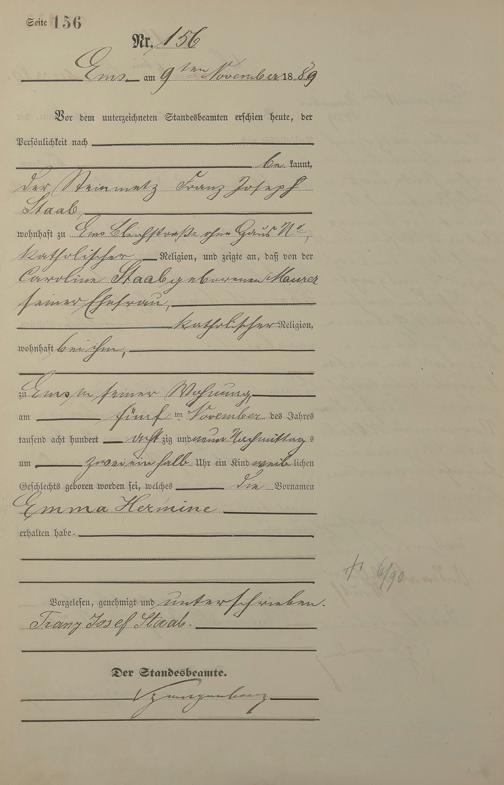 Seite 156
Nr. 156
Ems am 9ten November 1889
Vor dem unterzeichneten Standesbeamten erschien heute, der
Persönlichkeit nach
be kannt,
der Steinmetz Franz Joseph
Staab,
wohnhaft zu Ems ohne Haus No,
katholischer Religion, und zeigte an, daß von der
Caroline Staab geborenen Maurer
seiner Ehefrau,
katholischer Religion,
wohnhaft bei ihm,
zu Ems in seiner Wohnung
am fünf ten November des Jahres
tausend acht hundert acht zig und neun Nachmittags
um zwei ein halb Uhr ein Kind weib lichen
Geschlechts geboren worden sei, welches die Vornamen
Emma Hermine
erhalten habe.
Vorgelesen, genehmigt und unterschrieben.
Franz Josef Staab.
Der Standesbeamte.